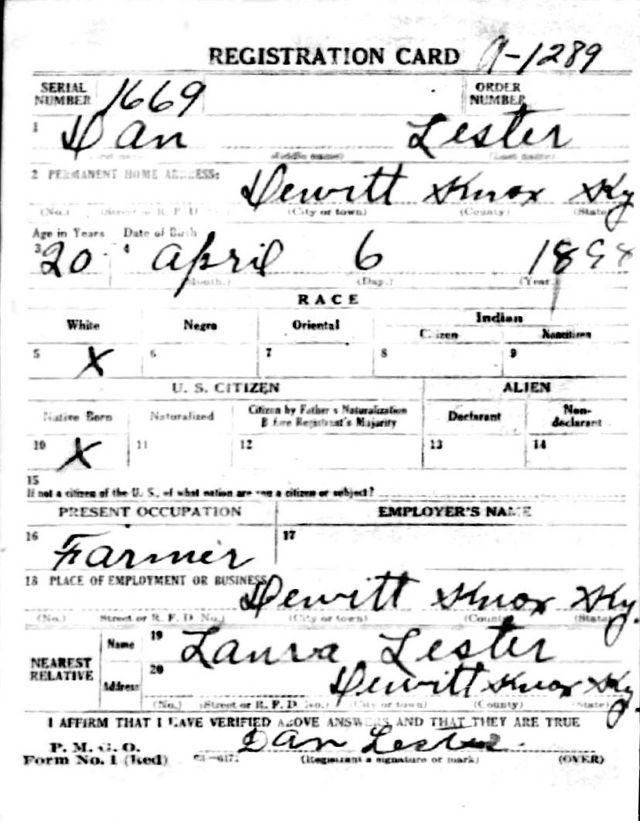 REGISTRATION CARD A-1289
SERIAL NUMBER 1669 ORDER NUMBER
1 Dan Lester
(First name) (Middle name) (Last name)
2 PERMANENT HOME ADDRESS: Dewitt Knox Ky
(No.) (Street or R. F. D. No.) (City or town) (County) (State)
Age in Years Date of Birth
3 20 4 April 6 1898
(Month.) (Day.) (Year.)
RACE
White Negro Oriental Indian
Citizen Noncitizen
5 X 6 7 8 9
U. S. CITIZEN ALIEN
Native Born Naturalized Citizen by Father's Naturalization Before Registrant's Majority Declarant Non-declarant
10 X 11 12 13 14
15
If not a citizen of the U. S., of what nation are you a citizen or subject?
PRESENT OCCUPATION EMPLOYER'S NAME
16 Farmer 17
18 PLACE OF EMPLOYMENT OR BUSINESS Dewitt Knox Ky.
(No.) Street or R. F. D. No.) (City or town) (County) (State)
NEAREST RELATIVE Name 19 Laura Lester
Address 20 Dewitt Knox Ky
(No.) (Street or R. F. D. No.) (City or town) (County) (State)
I AFFIRM THAT I HAVE VERIFIED ABOVE ANSWERS AND THAT THEY ARE TRUE
P. M. G. O.
Form No. 1 (Red) Dan Lester
(Registrant's signature or mark) (OVER)